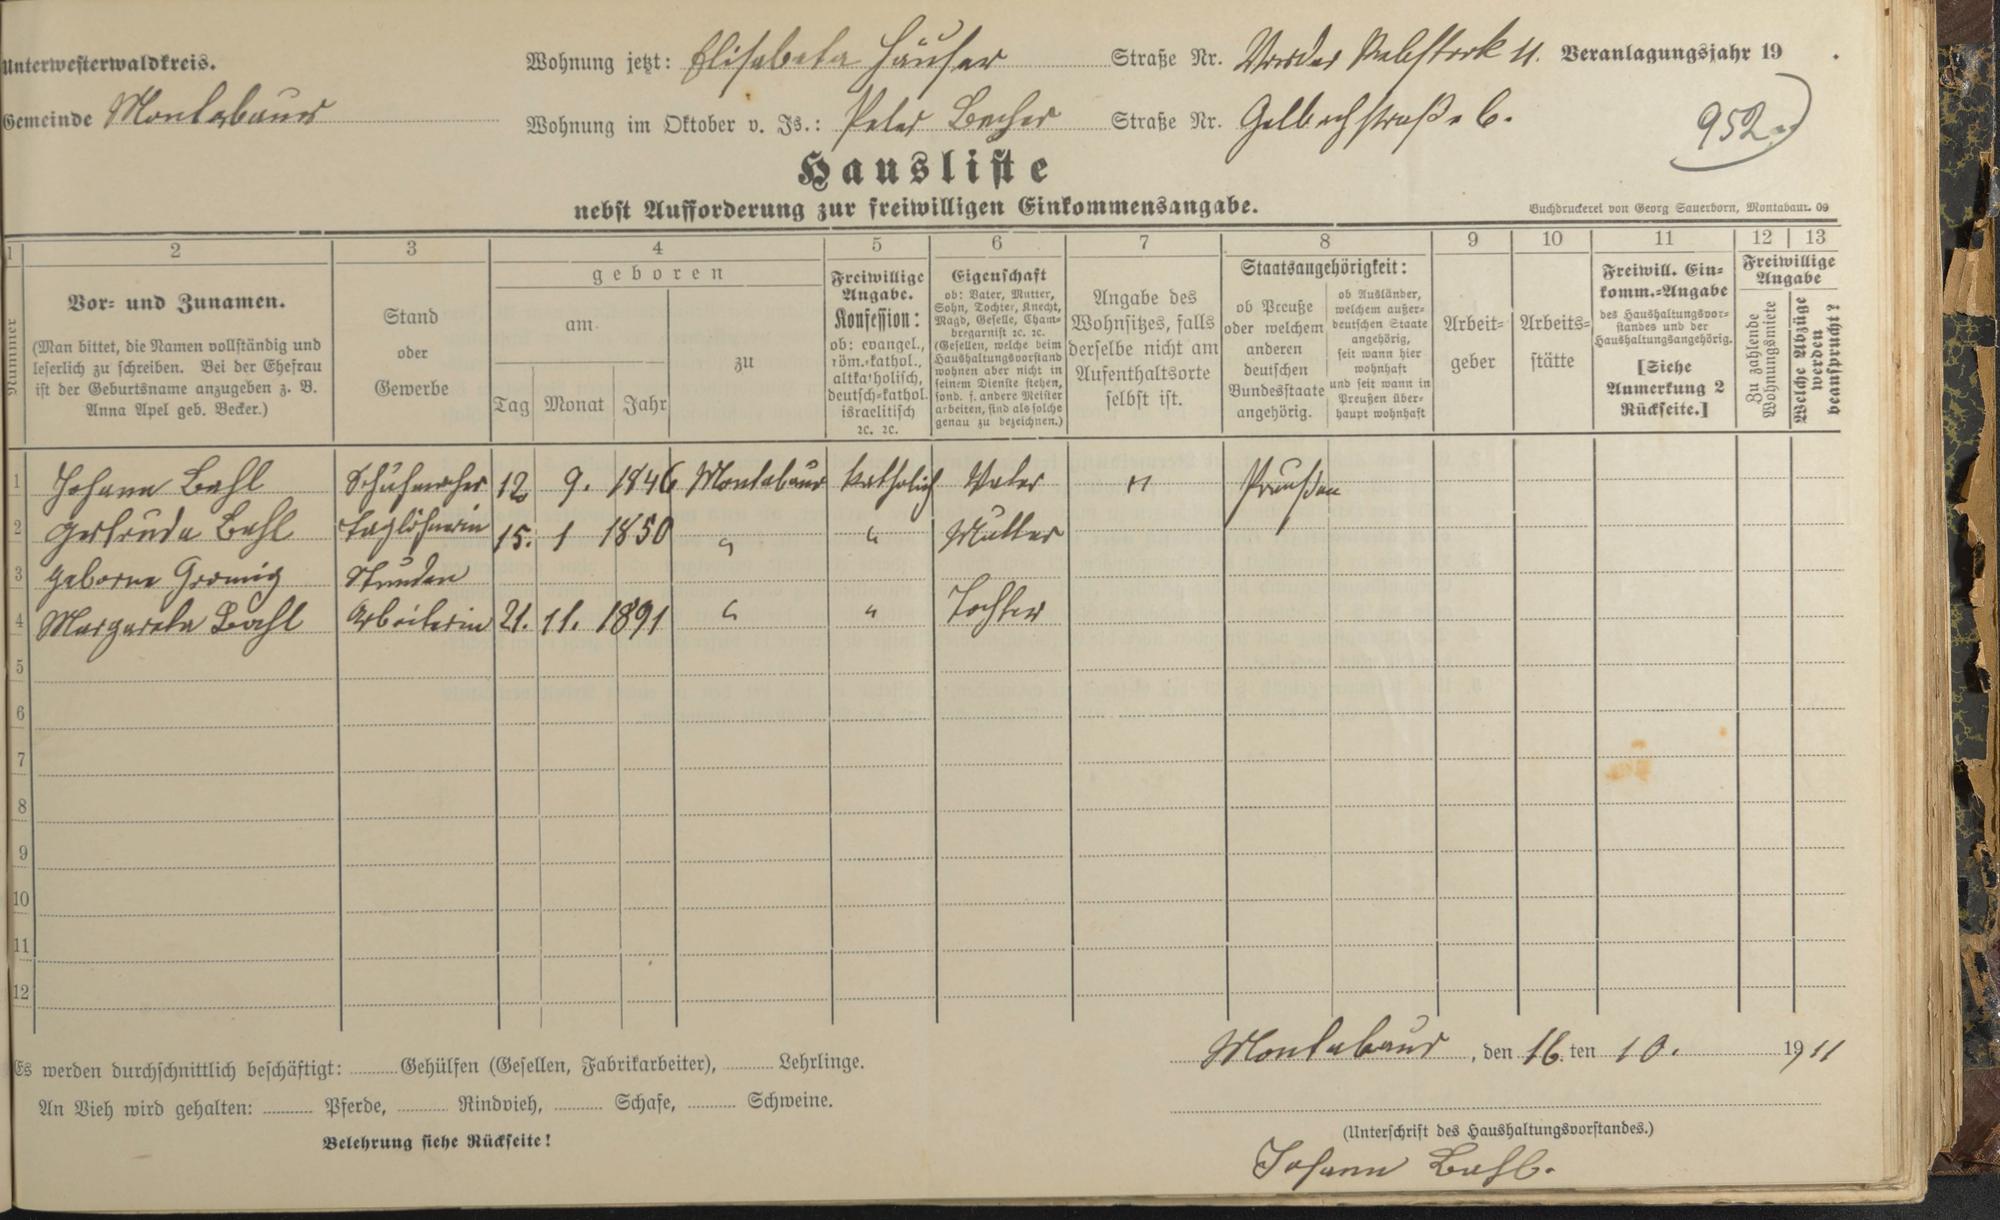 Unterwesterwaldkreis.
Wohnung jetzt: Elisabeta Häuser Straße Nr. Vorder Rebstock 11. Veranlagungsjahr 19 .
Gemeinde Montabaur
Wohnung im Oktober v. Js.: Peter Becher Straße Nr. Gelbachstraße 6.
952
Hausliste
nebst Aufforderung zur freiwilligen Einkommensangabe.
Buchdruckerei von Georg Sauerborn, Montabaur. 09
1 2 3 4 5 6 7 8 9 10 11 12 13
Nummer
Vor- und Zunamen.
(Man bittet, die Namen vollständig und
leserlich zu schreiben. Bei der Ehefrau
ist der Geburtsname anzugeben z. B.
Anna Apel geb. Becker.)
Stand
oder
Gewerbe
geboren
am
Tag Monat Jahr
zu
Freiwillige
Angabe.
Konfession:
ob: evangel.,
röm.-kathol.,
altkatholisch,
deutsch-kathol.
israelitisch
ꝛc. ꝛc.
Eigenschaft
ob: Vater, Mutter,
Sohn, Tochter, Knecht,
Magd, Geselle, Cham-
bergarnist ꝛc. ꝛc.
(Gesellen, welche beim
Haushaltungsvorstand
wohnen aber nicht in
seinem Dienste stehen,
sond. f. andere Meister
arbeiten, sind als solche
genau zu bezeichnen.)
Angabe des
Wohnsitzes, falls
derselbe nicht am
Aufenthaltsorte
selbst ist.
Staatsangehörigkeit:
ob Preuße
oder welchem
anderen
deutschen
Bundesstaate
angehörig.
ob Ausländer,
welchem außer-
deutschen Staate
angehörig,
seit wann hier
wohnhaft
und seit wann in
Preußen über-
haupt wohnhaft
Arbeit-
geber
Arbeits-
stätte
Freiwill. Ein-
komm.-Angabe
des Haushaltungsvor-
standes und der
Haushaltungsangehörig.
[Siehe
Anmerkung 2
Rückseite.]
Freiwillige
Angabe
Zu zahlende
Wohnungsmiete
Welche Abzüge
werden
beansprucht?
1 Johann Bahl Schuhmacher 12 9. 1846 Montabaur katholisch Vater " Preußen
2 Gertruda Bahl Taglöhnerin 15. 1 1850 " " Mutter
3 geborne Gromig Stunden
4 Margareta Bahl Arbeiterin 21. 11. 1891 " " Tochter
5
6
7
8
9
10
11
12
Es werden durchschnittlich beschäftigt: Gehülfen (Gesellen, Fabrikarbeiter), Lehrlinge.
An Vieh wird gehalten: Pferde, Rindvieh, Schafe, Schweine.
Belehrung siehe Rückseite!
Montabaur, den 16.ten 10. 1911
(Unterschrift des Haushaltungsvorstandes.)
Johann Bahl.